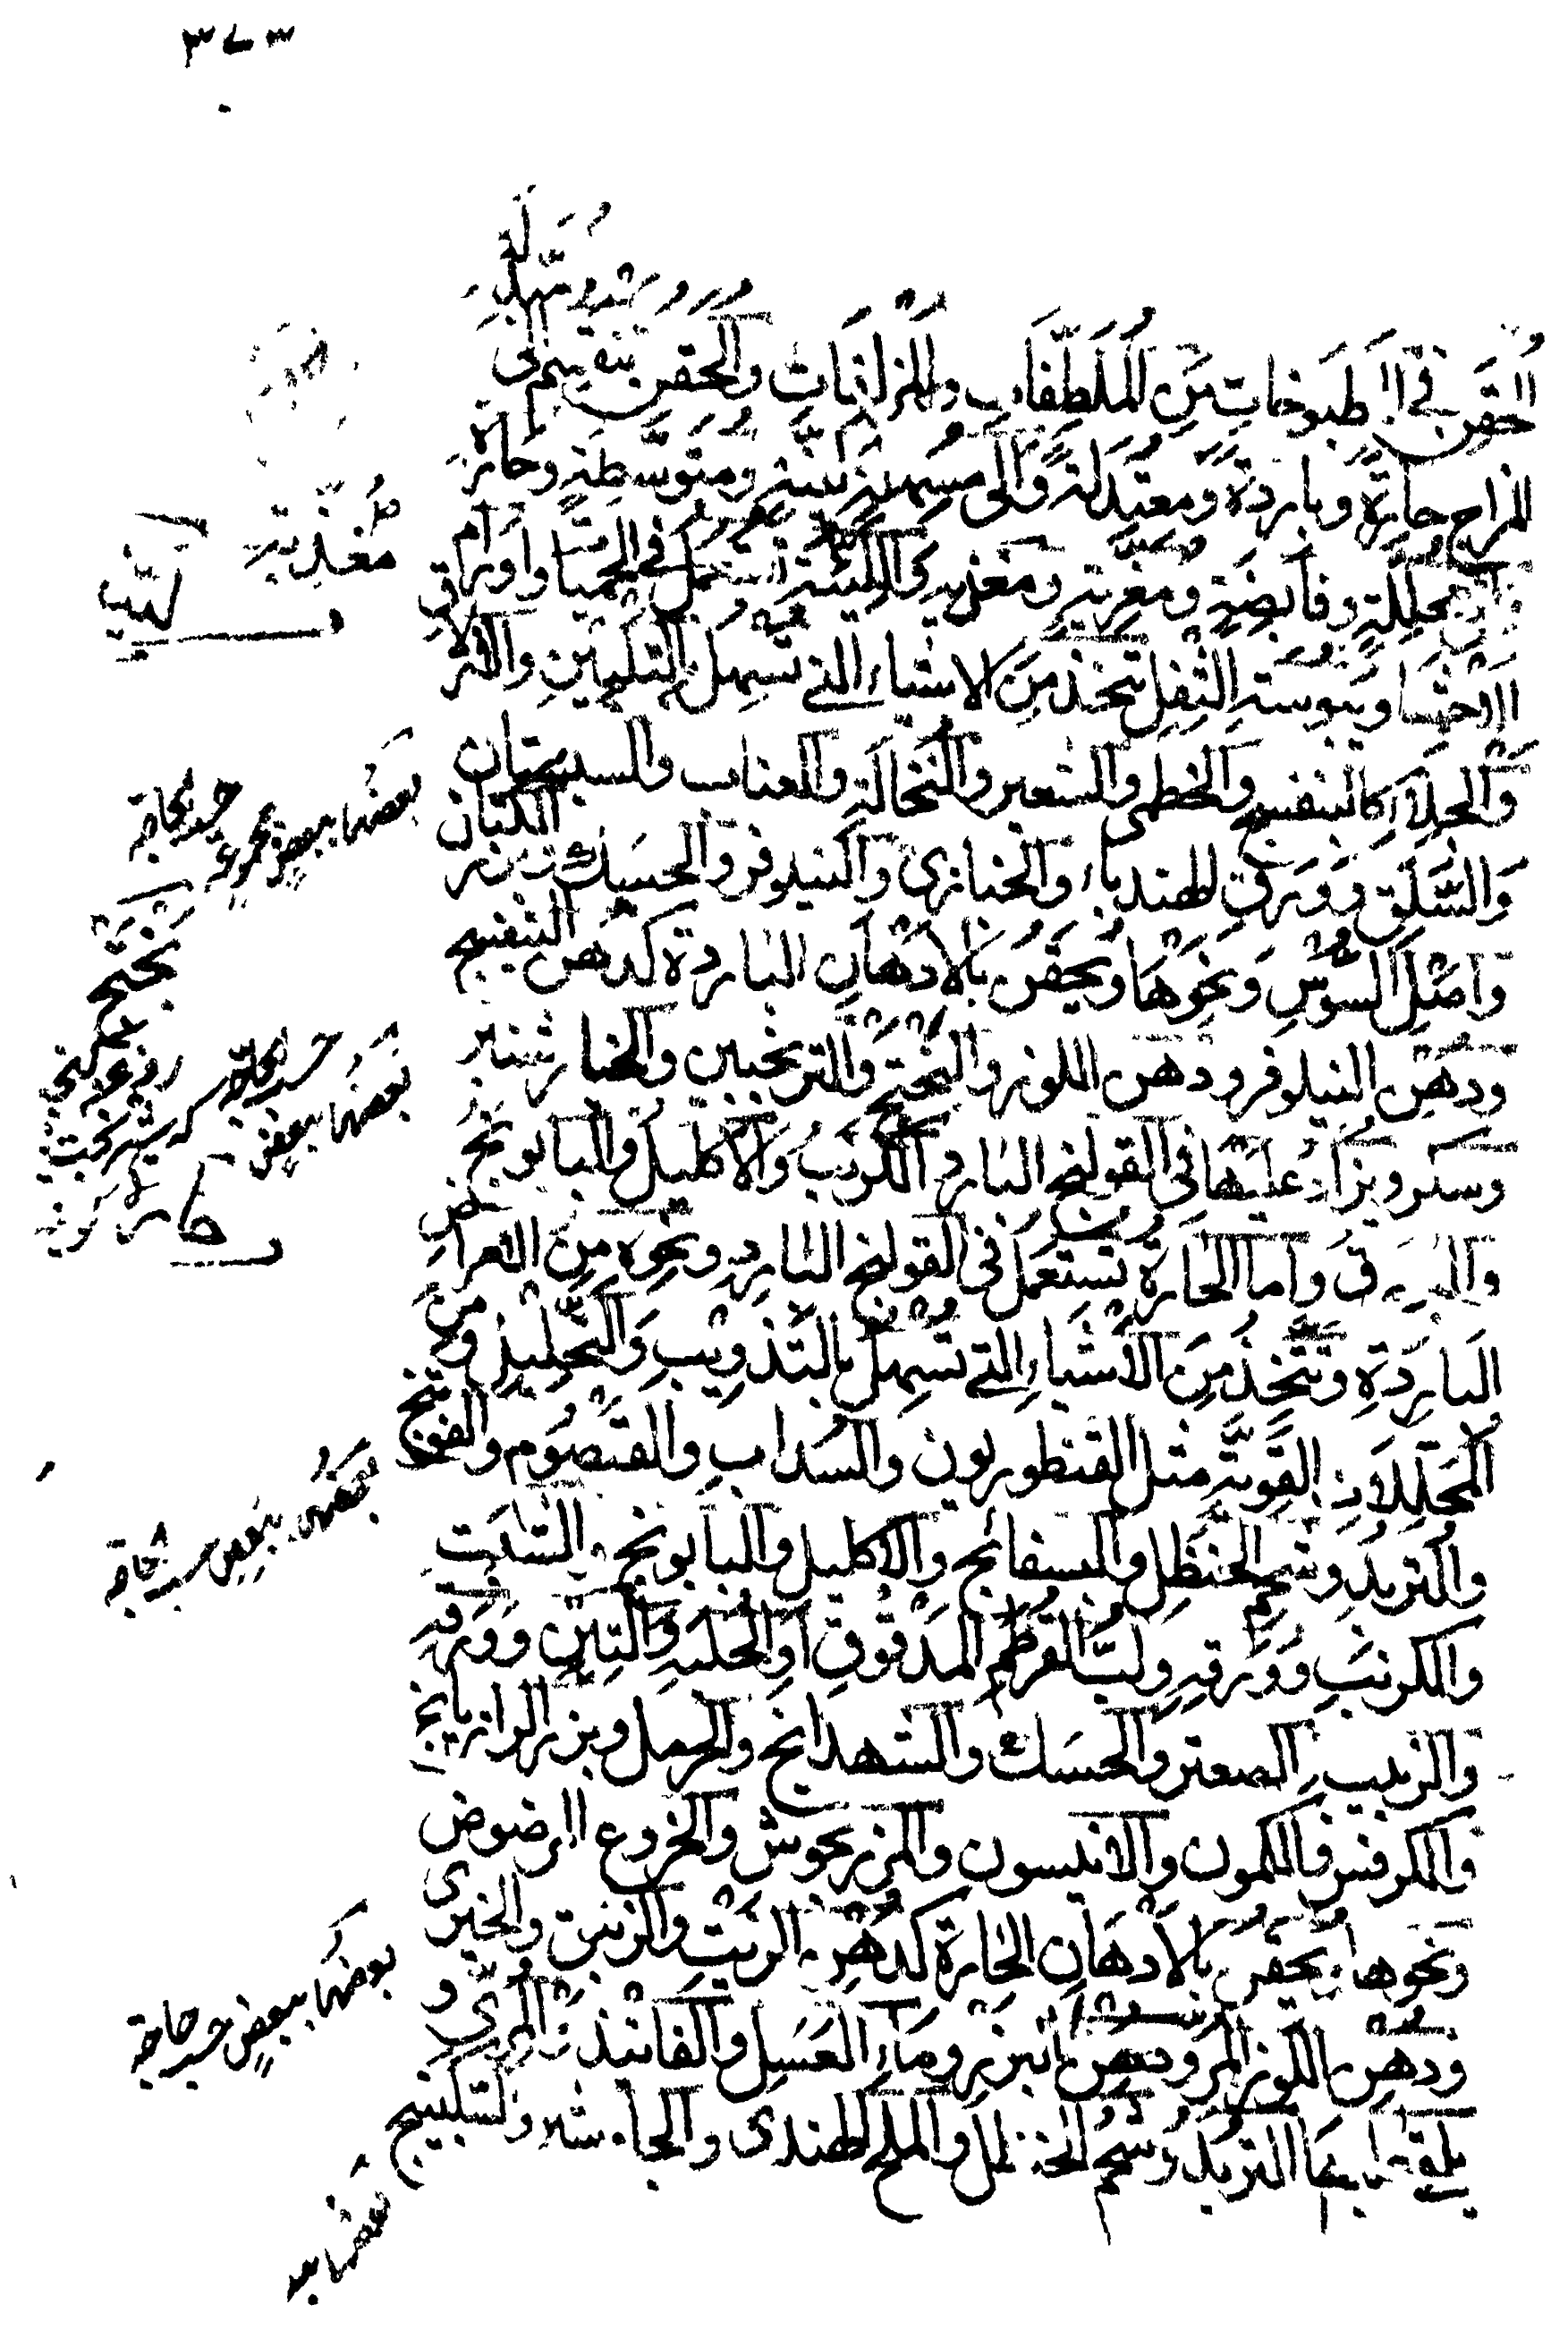 ٣٧٣
الحقن في المطبوخات من الملطفات والمزلقات والحقن تنقسم الى
المزاج حارة وباردة ومعتدلة والى مسهلة لينة ومتوسطة وحارة
محللة وقابضة ومغرية ومغذية والملينة تستعمل في الحميات واورام
الاحشا ويبوسة الثفل تتخذ من الاشياء التي تسهل بالتليين والازلاق
والجلاء كالبنفسج والخطمى والشعير والنخالة والعناب والسبستان
والسلق وورق الهندباء والخبازى والنيلوفر والحسك وبزر الكتان
واصل السوس ونحوها ويحقن بالادهان الباردة كدهن البنفسج
ودهن النيلوفر ودهن اللوز والبختج والترنجبين والخيار شنبر
وسكر ويزاد عليها في القولنج البارد الكرنب والاكليل والبابونج
واما الحارة تستعمل في القولنج البارد ونحوه من الامراض
الباردة وتتخذ من الاشياء التي تسهل بالتذويب والتحليل ومن
المحللات القوية مثل القنطوريون والسداب والقيصوم والفوتنج
والتربد وشحم الحنظل والبسفائج والاكليل والبابونج والشبت
والكرنب وورقه ولب القرطم المدقوق والحلبة والتين وورقه
والزبيب الصعتر والحسك والشهدانج والحرمل وبزر الرازيانج
والكرفس والكمون والانيسون والمرزنجوش والخروع المرضوض
ونحوها ويحقن بالادهان الحارة كدهن الزيت والزنبق والخيرى
ودهن اللوز المر ودهن البزر وماء العسل والفانيذ والمرى و
يلقى التربد وشحم الحنظل والملح الهندى والجاوشير والسكبينج
مغذية
لتليين
بعضها ببعض مجموع حسب الحاجة
بختج
بعضها ببعض حسب الحاجة
بعضها ببعض حسب حاجة
بعضها ببعض حسب حاجة